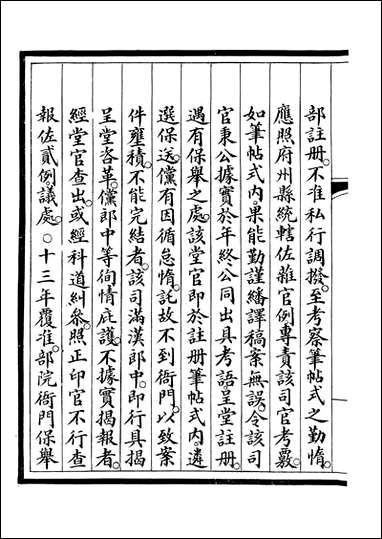 部註冊。不准私行調撥。至考察筆帖式之勤惰。
應照府州縣統轄佐雜官例。專責該司官考覈。
如筆帖式內。果能勤謹繙譯稿案無誤。令該司
官秉公據實於年終公同出具考語。呈堂註冊。
遇有保舉之處。該堂官即於註冊筆帖式內。遴
選保送。儻有因循怠惰。託故不到衙門。以致案
件壅積。不能完結者。該司滿漢郎中。即行具揭
呈堂咨革。儻郎中等徇情庇護。不據實揭報者。
經堂官查出。或經科道糾參。照正印官不行查
報佐貳例議處。○十三年覆准。部院衙門保舉